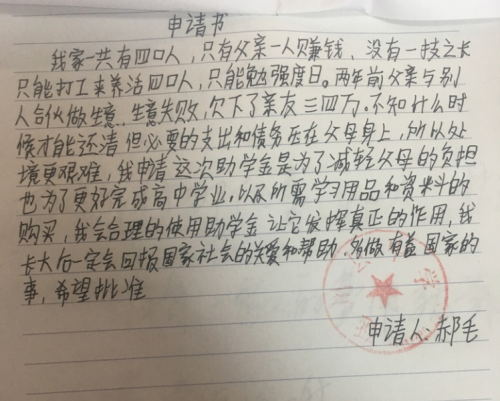 申请书
我家一共有四口人，只有父亲一人赚钱、没有一技之长
只能打工来养活四口人，只能勉强度日。两年前父亲与别
人合伙做生意、生意失败，欠下了亲友三四万。不知什么时
候才能还清但必要的支出和债务压在父母身上，所以处
境更艰难，我申请这次助学金是为了减轻父母的负担
也为了更好完成高中学业，以及所需学习用品和资料的
购买，我会合理的使用助学金让它发挥真正的作用，我
长大后一定会回报国家社会的关爱和帮助、多做有益国家的
事，希望批准
申请人：郝毛